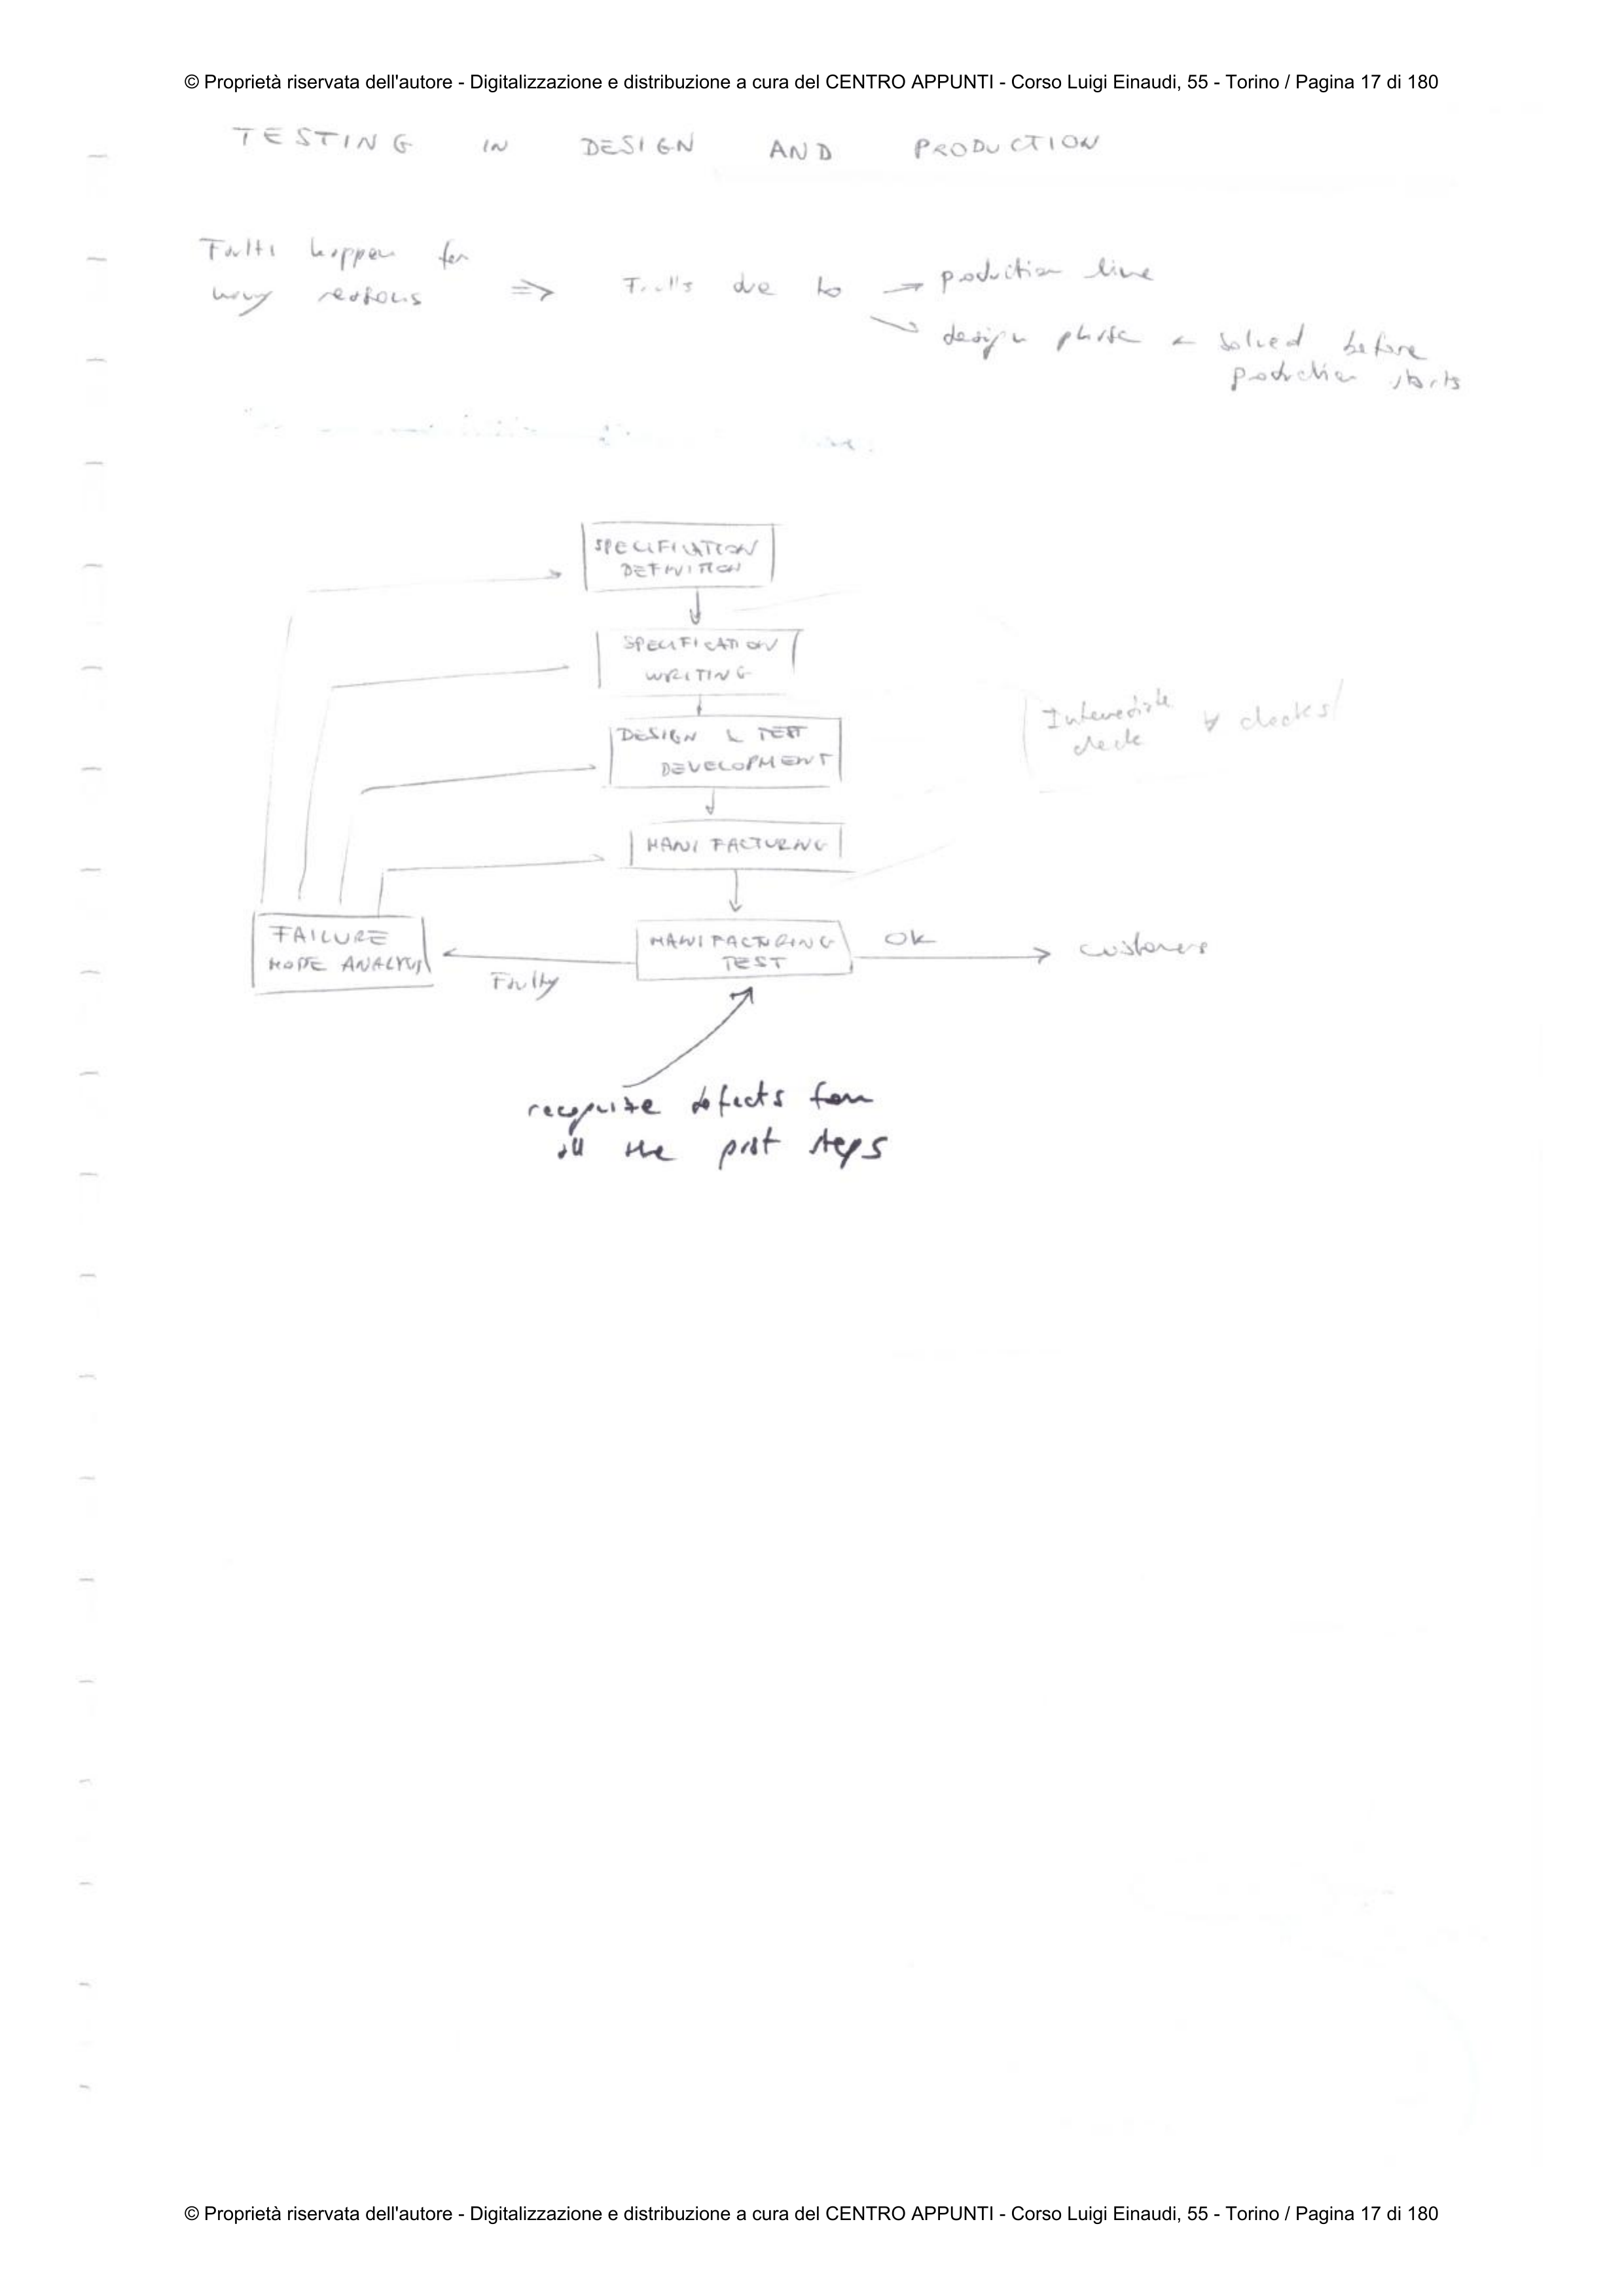 © Proprietà riservata dell'autore - Digitalizzazione e distribuzione a cura del CENTRO APPUNTI - Corso Luigi Einaudi, 55 - Torino / Pagina 17 di 180
TESTING IN DESIGN AND PRODUCTION
Faults happen for
many reasons ⇒ Faults due to → production line
→ design phase ← solved before
production starts
SPECIFICATION
DEFINITION
SPECIFICATION
WRITING
Intermediate
check ∀ clocks
DESIGN & TEST
DEVELOPMENT
MANIFACTURING
FAILURE
MODE ANALYSIS
Faulty
MANIFACTURING
TEST
OK
customers
recognize defects from
all the past steps
© Proprietà riservata dell'autore - Digitalizzazione e distribuzione a cura del CENTRO APPUNTI - Corso Luigi Einaudi, 55 - Torino / Pagina 17 di 180